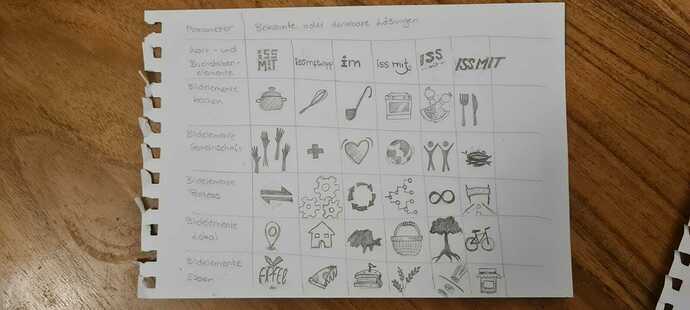 Parameter Bekannte oder denkbare Lösungen
Wort- und
Buchstaben-
elemente
ISS
MIT
issmitapp
im
iss mit.
ISS
ISSMIT
Bildelemente
kochen
Bildelemente
Gemeinschaft
Bildelemente
Prozess
Bildelemente
Lokal
Bildelemente
Essen